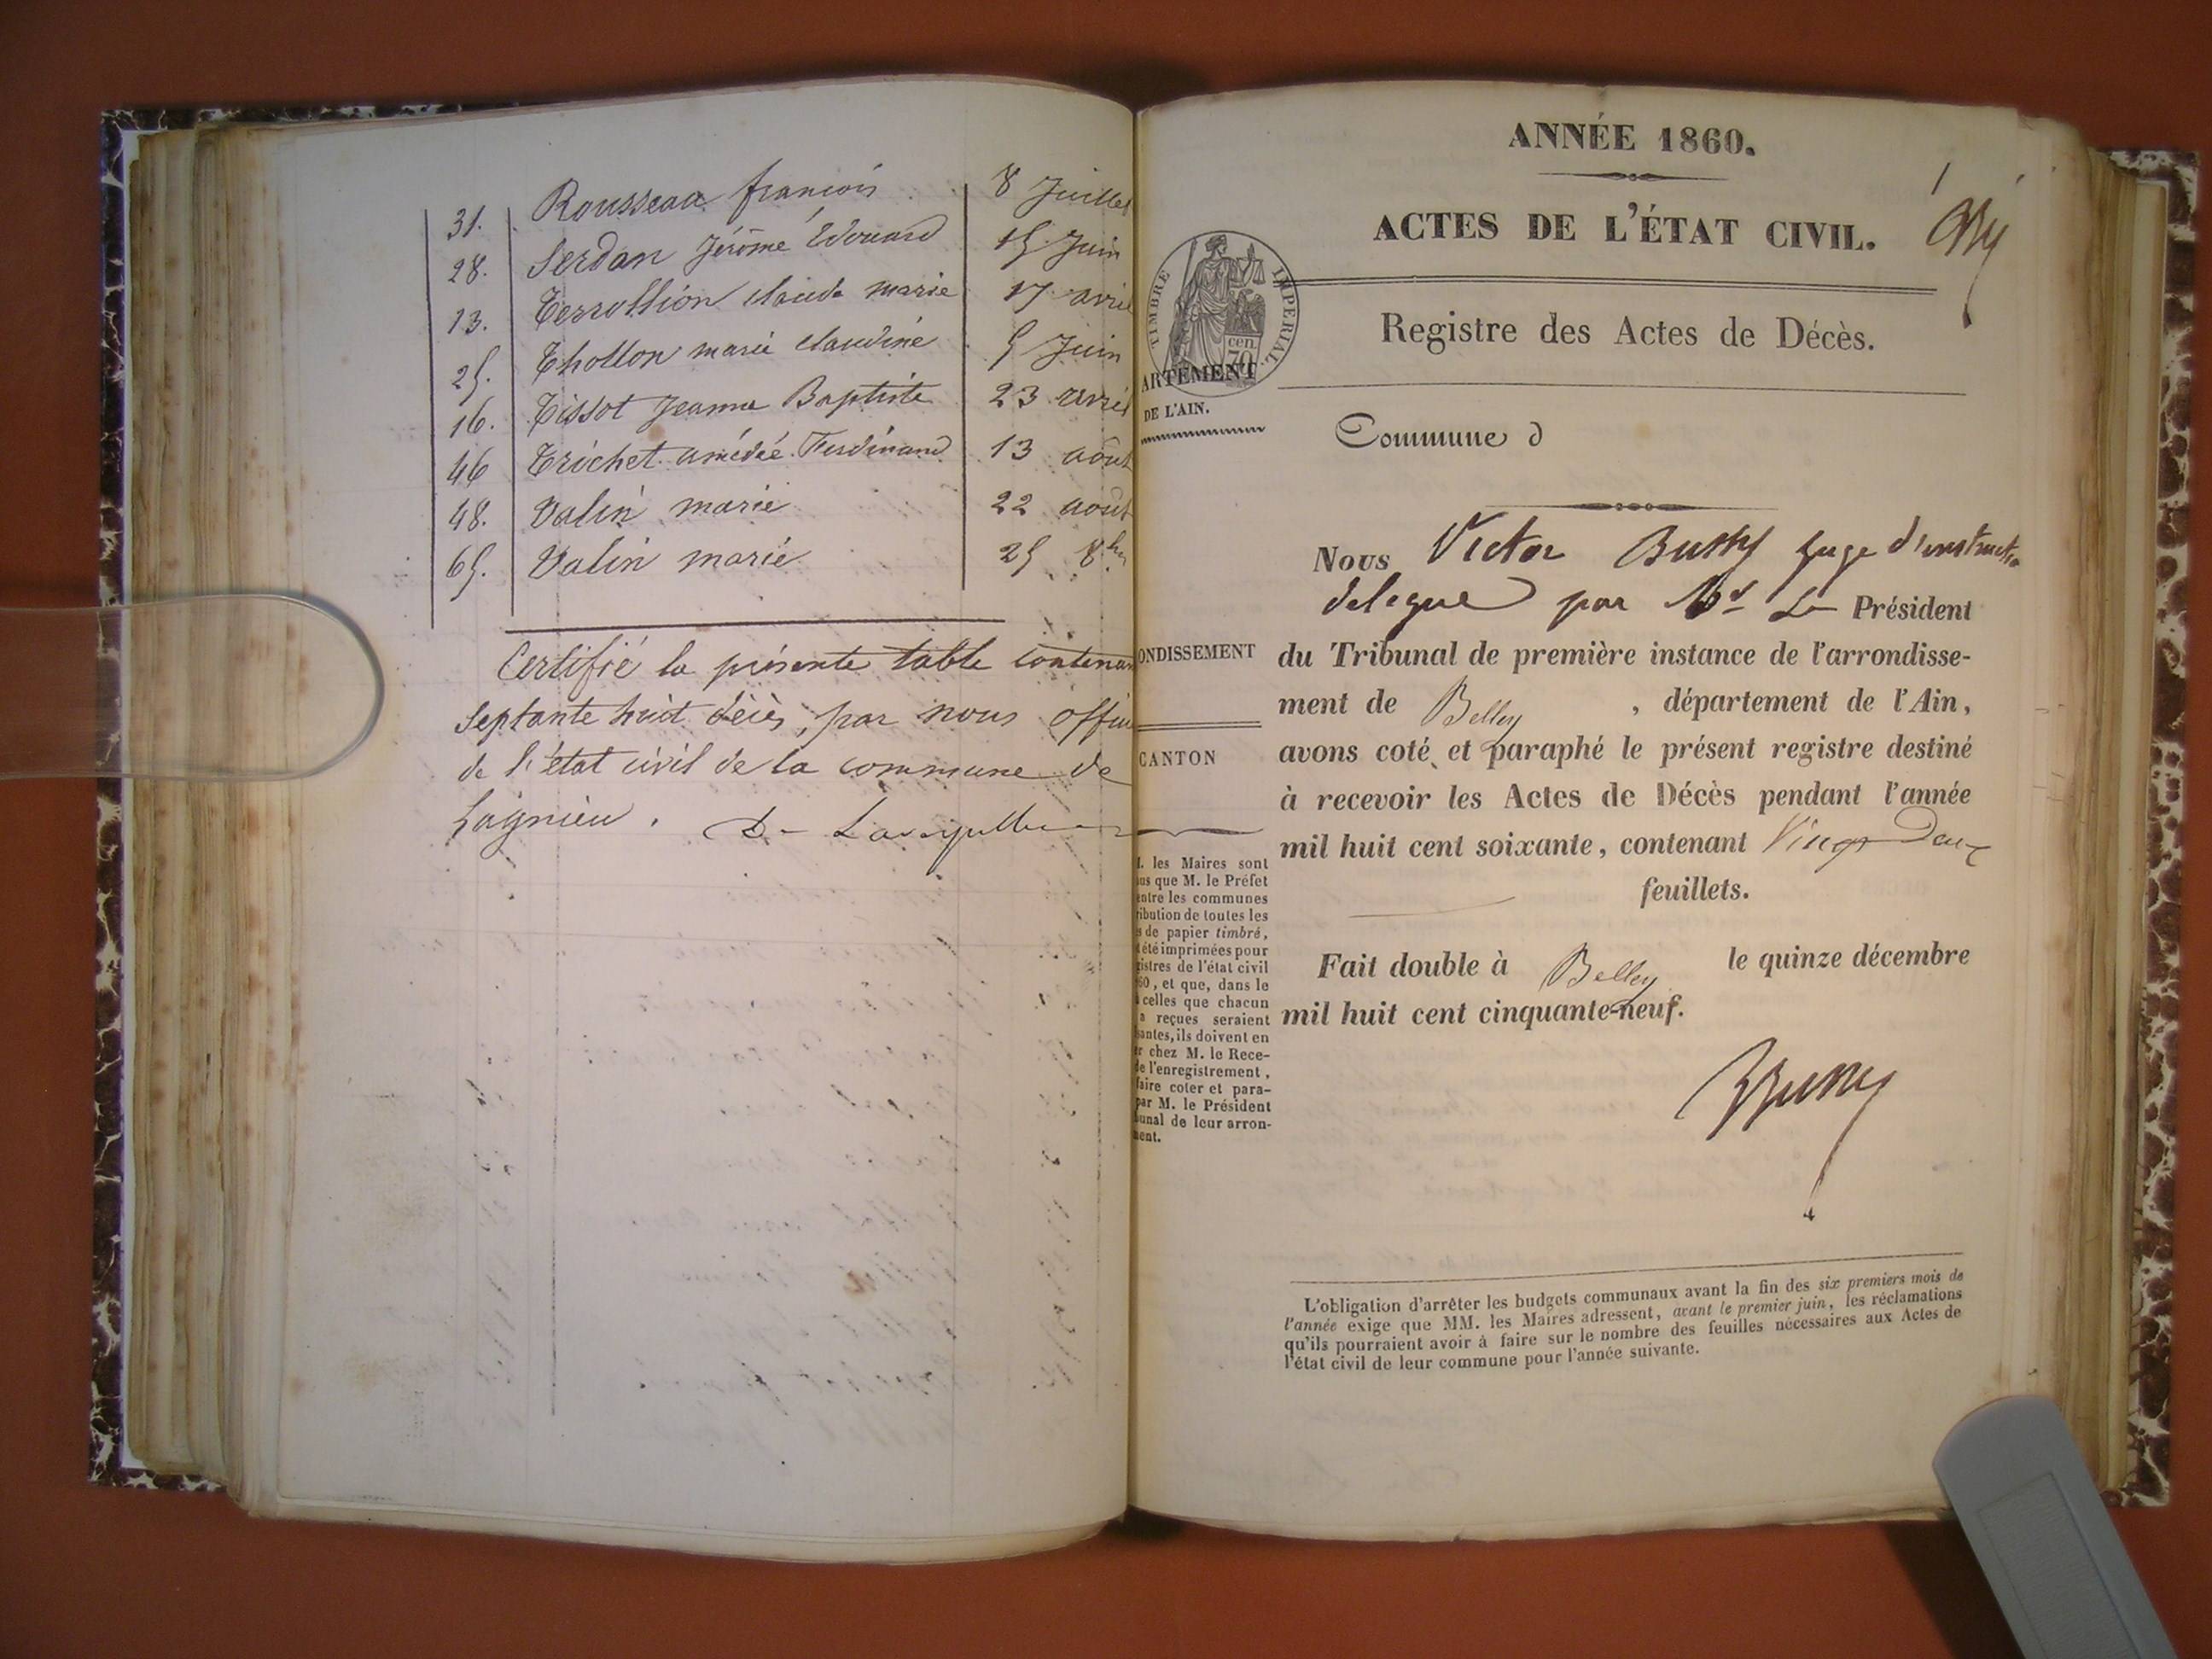 31. Rousseau françois 8 Juillet
28. Serdan Jérôme Édouard 15 Juin
13. Terrollion claude marie 17 avril
25. Thollon marie claudine 5 Juin
16. Tissot Jeanne Baptiste 23 avril
46 Trichet amédée Ferdinand 13 août
48. Valin marie 22 août
65. Valin marie 25 8bre
Certifié la présente table contenan
septante huit décès, par nous offici
de l'état civil de la commune de
Lagnieu.
ANNÉE 1860.
ACTES DE L'ÉTAT CIVIL.
TIMBRE IMPÉRIAL.
cen.
70
Registre des Actes de Décès.
ARTEMENT
DE L'AIN.
Commune d
Nous Victor Bussy Juge d'instruction
délégué par Mr Le Président
ONDISSEMENT
du Tribunal de première instance de l'arrondisse-
ment de Belley, département de l'Ain,
CANTON
avons coté et paraphé le présent registre destiné
à recevoir les Actes de Décès pendant l'année
mil huit cent soixante, contenant Vingt Deux
feuillets.
Fait double à Belley le quinze décembre
mil huit cent cinquante-neuf.
Bussy
. les Maires sont
us que M. le Préfet
entre les communes
ribution de toutes les
s de papier timbré,
été imprimées pour
gistres de l'état civil
60, et que, dans le
celles que chacun
a reçues seraient
santes, ils doivent en
r chez M. le Rece-
de l'enregistrement,
faire coter et para-
par M. le Président
bunal de leur arron-
ment.
L'obligation d'arrêter les budgets communaux avant la fin des six premiers mois de
l'année exige que MM. les Maires adressent, avant le premier juin, les réclamations
qu'ils pourraient avoir à faire sur le nombre des feuilles nécessaires aux Actes de
l'état civil de leur commune pour l'année suivante.